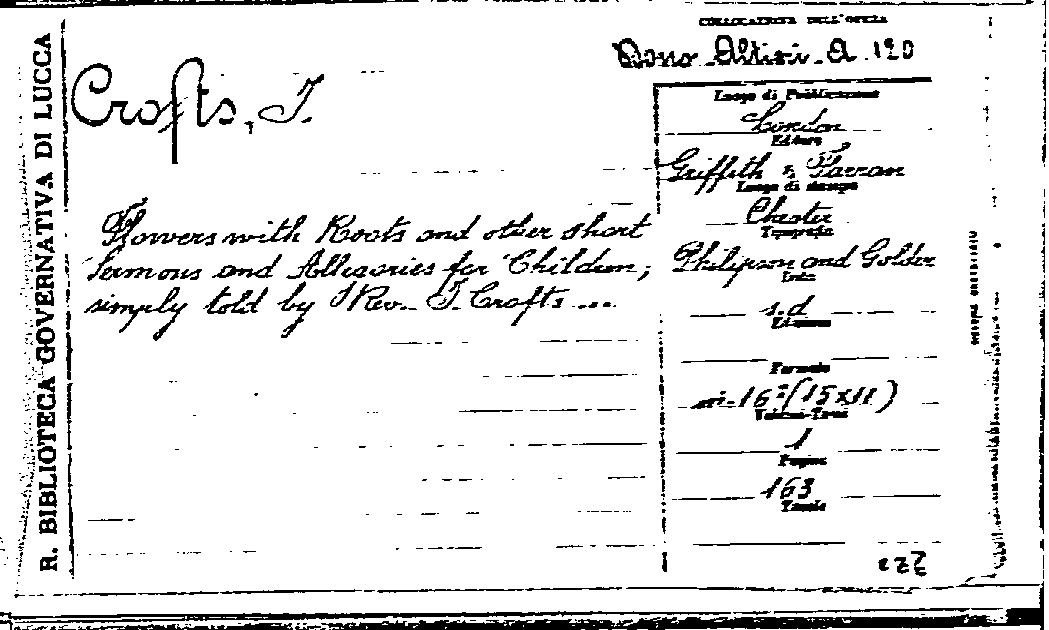 R. BIBLIOTECA GOVERNATIVA DI LUCCA
COLLOCAZIONE DELL'OPERA
Dono Altisi A 120
Crofts, J.
Flowers with Roots and other short
Sermons and Allegories for Children;
simply told by Rev. J. Crofts ...
Luogo di Pubblicazione
London
Editore
Griffith & Farran
Luogo di stampa
Chester
Tipografia
Philipson and Golder
Data
s.d
Edizione
Formato
in-16º (15x11)
Volume-Tomi
1
Pagine
163
Tavole